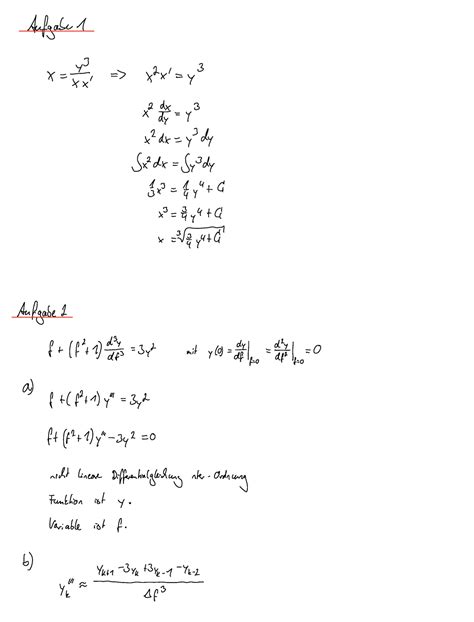 Aufgabe 1
x = y³/(x x') => x²x' = y³
x² dx/dy = y³
x² dx = y³ dy
∫x² dx = ∫y³ dy
1/3 x³ = 1/4 y⁴ + C₁
x³ = 3/4 y⁴ + C₁
x = ³√(3/4 y⁴ + C₁)
Aufgabe 2
f + (f² + 1) d³y/df³ = 3y² mit y(0) = dy/df|f=0 = d²y/df²|f=0 = 0
a)
f + (f² + 1) y''' = 3y²
f + (f² + 1) y''' - 3y² = 0
nicht lineare Differentialgleichung nter-Ordnung
Funktion ist y.
Variable ist f.
b)
yₖ''' ≈ (yₖ₊₁ - 3yₖ + 3yₖ₋₁ - yₖ₋₂)/Δf³